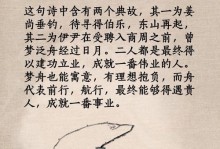 这句诗中含有两个典故，其一为姜
尚垂钓，待寻得伯乐，东山再起，
其二为伊尹在受聘入商周之前，曾
梦泛舟经过日月。二人都是最终得
以建功立业，成就一番伟业的人。
梦舟也能寓意，有理想抱负，而舟
代表前行，航行，最终能够得遇贵
人，成就一番事业。